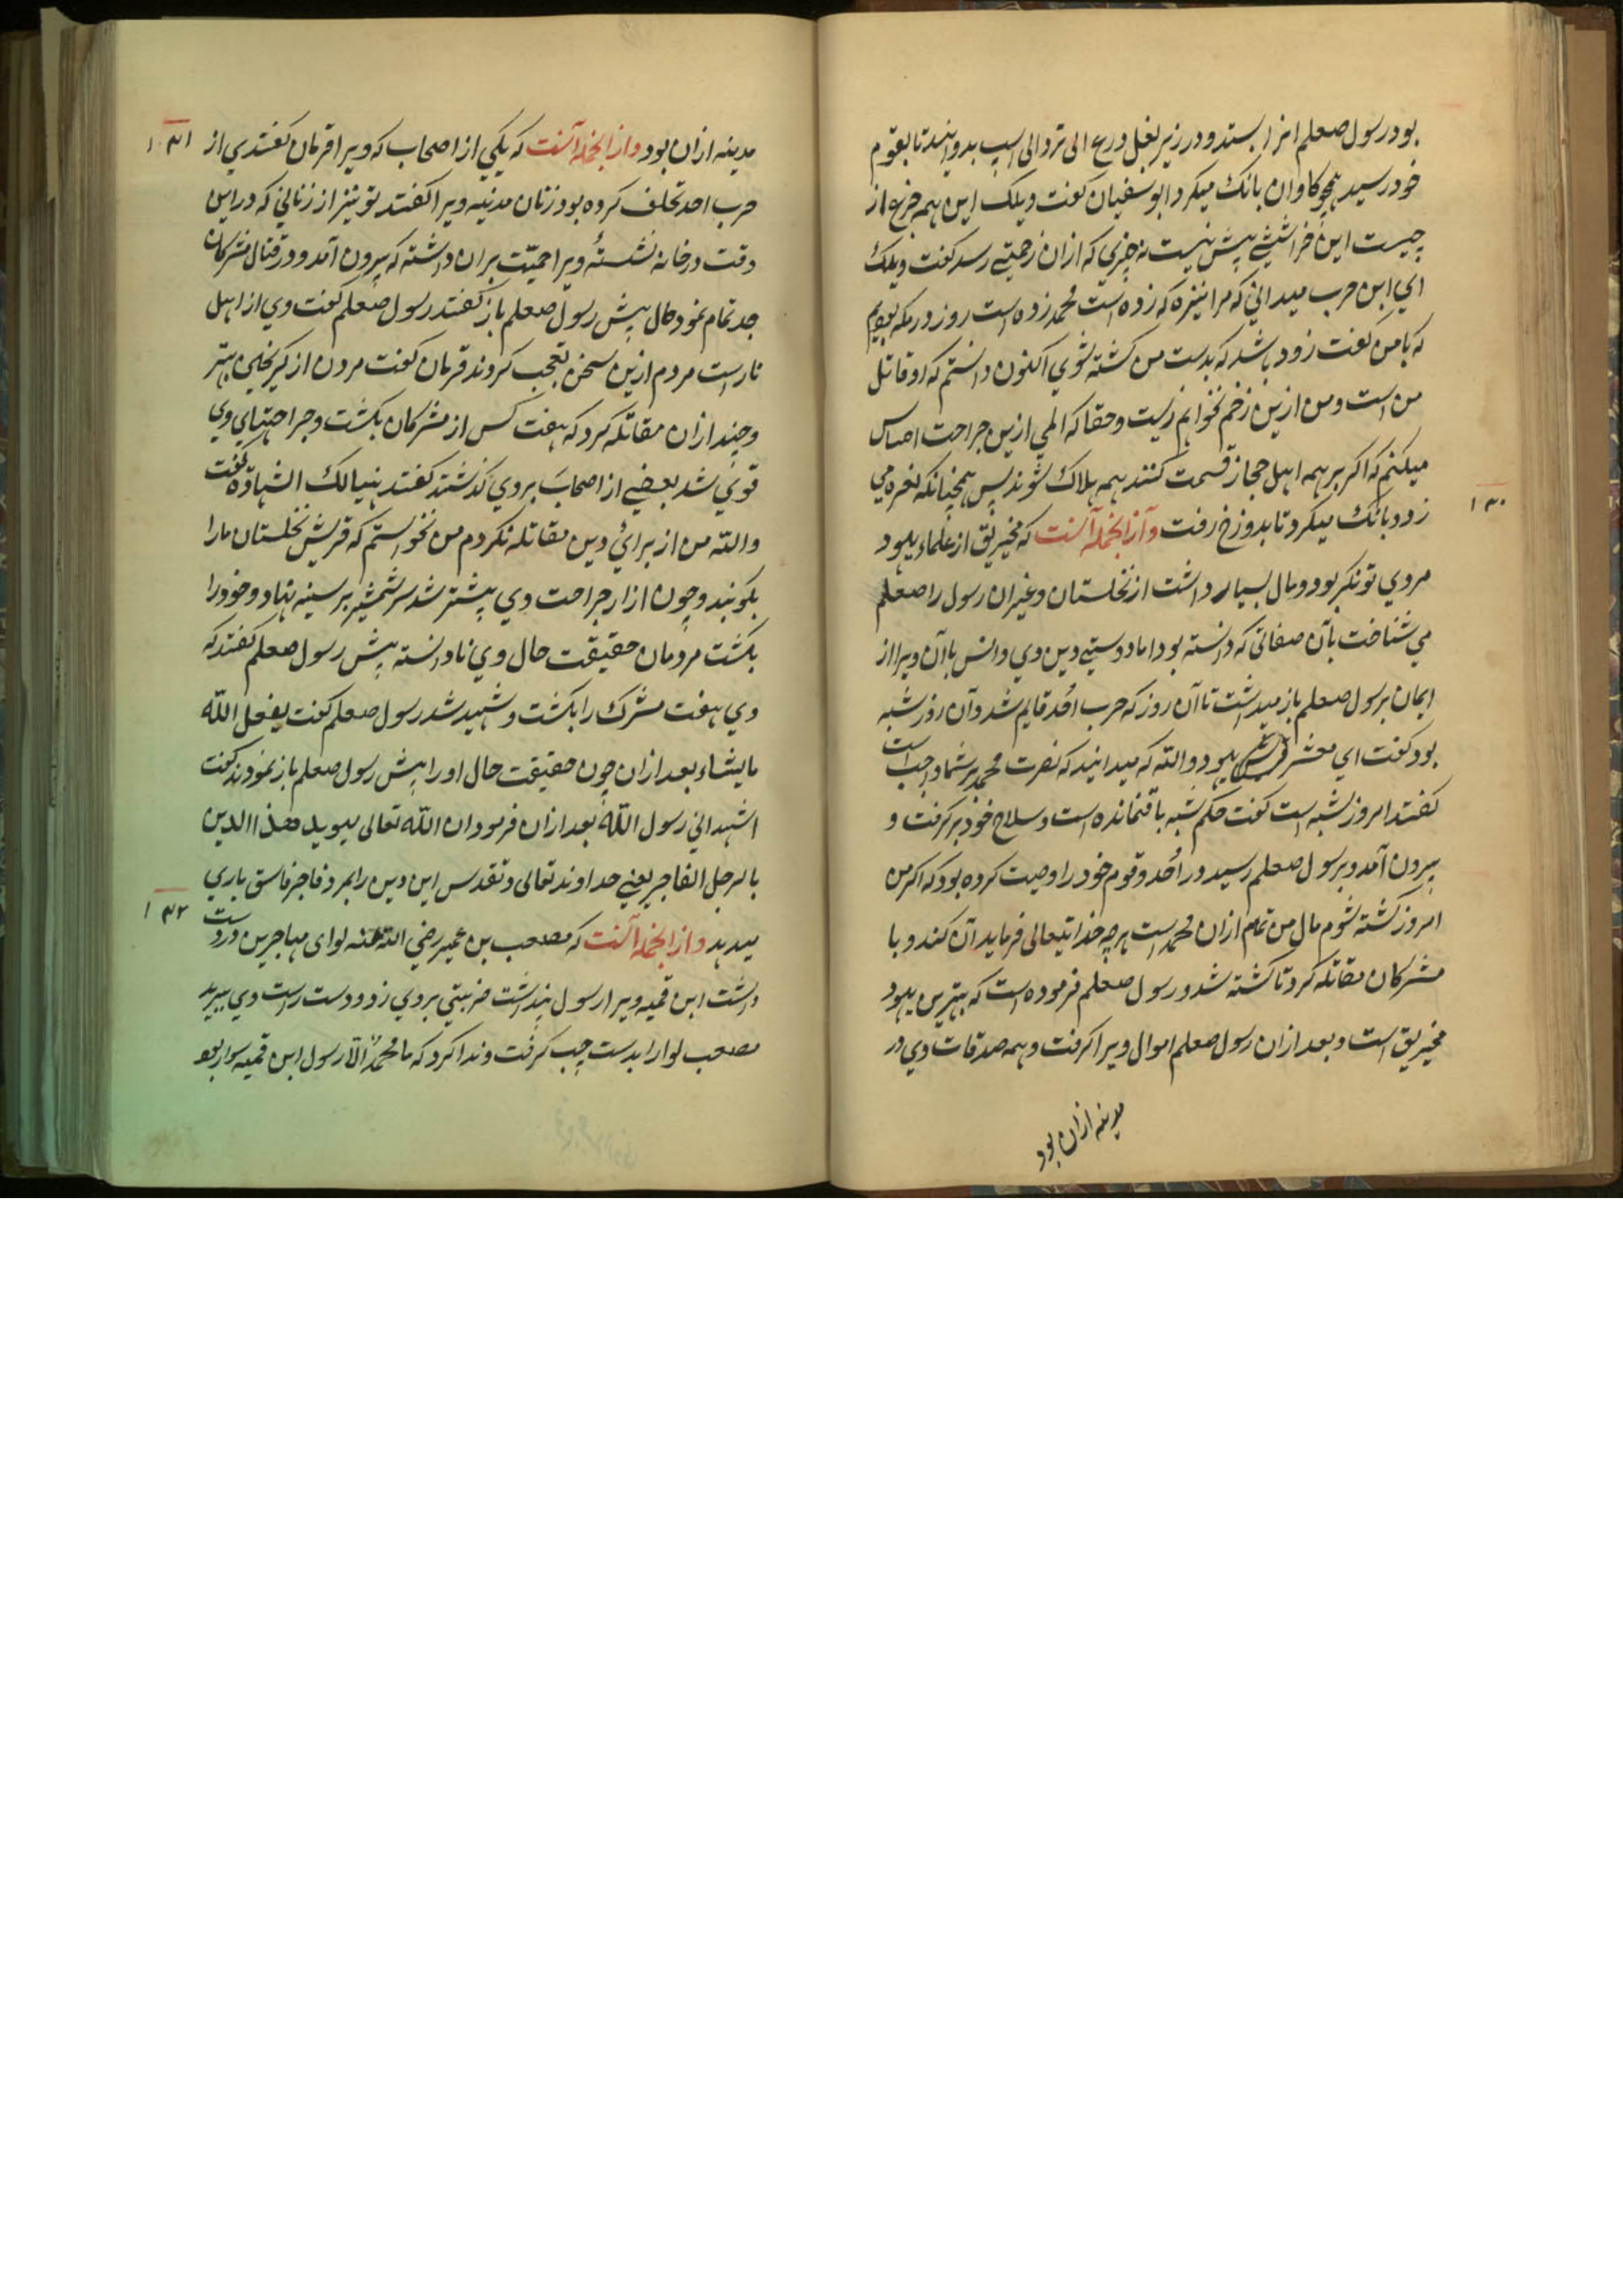 بود رسول صعلم انرا بستد و در زیر بغل درع الی تردالی اسپ بدوانید تا بقوم
خود رسید همچو کاوان بانک میکرد ابو سفیان کفت ویلک این همه جزع از
چیست این خراشیی بیش نیست نه چیزی که ازان زحمتی رسد کفت ویلک
ای ابن حرب میدانی که مرا نیزه که زده است محمد زده است روز در مکه
که با من کفت زود باشد که بدست من کشته شوی اکنون دانستم که او قاتل
من است و من ازین زخم نخواهم زیست و حقا که المی ازین جراحت احساس
میکنم که اکر بر همه اهل حجاز قسمت کنند همه هلاک شوند پس همچنانکه نعره می
زد و بانک میکرد تا بدوزخ رفت وازانجمله آنست که مخیریق از علماء یهود
۱۳۰
مردی تونکر بود و مال بسیار داشت از نخلستان و غیر ان رسول را صعلم
می شناخت بآن صفاتی که دانسته بود اما دوستیی دین وی و انس بآن ویرا از
ایمان برسول صعلم باز میداشت تا آن روز که حرب احُد قایم شد و آن روز شنبه
بود کفت ای معشر یهود والله که میدانید که نصرت محمد بر شما واجب است
کفتند امروز شنبه است کفت حکم شنبه باقی نمانده است و سلاح خود بر کرفت و
بیرون آمد و برسول صعلم رسید در احُد و قوم خود را وصیت کرده بود که اکر من
امروز کشته شوم مال من تمام ازان محمد است هر چه خدایتعالی فرماید آن کند و با
مشرکان مقاتله کرد تا کشته شد و رسول صعلم فرموده است که بهترین یهود
مخیریق است و بعد ازان رسول صعلم اموال ویرا کرفت و همه صدقات وی در
مدینه ازان بود
مدینه ازان بود وازانجمله آنست که یکی از اصحاب که ویرا قزمان کفتندی از
۱۳۱
حرب احد تخلف کرده بود زنان مدینه ویرا کفتند تو نیز از زنانی که در این
وقت در خانه نشستهٔ ویرا حمیّت بران داشته که بیرون آمد و در قتال مشرکان
جد تمام نمود حال پیش رسول صعلم باز کفتند رسول صعلم کفت وی از اهل
نار است مردم ازین سخن تعجب کردند قزمان کفت مردن از کریختن بهتر
و چندان مقاتله کرد که هفت کس از مشرکان بکشت و جراحتهای وی
قوی شد بعضی از اصحاب بر وی کذشتند کفتند هنیالک الشهادة کفت
والله من از برای دین مقاتله نکردم من نخواستم که قریش نخلستان ما را
بکوبند و چون ازار جراحت وی بیشتر شد سر شمشیر بر سینه نهاد و خود را
بکشت مردمان حقیقت حال وی نادانسته پیش رسول صعلم کفتند که
وی هفت مشرک را بکشت و شهید شد رسول صعلم کفت یفعل الله
مایشاء بعد ازان چون حقیقت حال او را پیش رسول صعلم باز نمودند کفت
اشهد انی رسول الله بعد ازان فرمود ان الله تعالی یوید هذا الدین
بالرجل الفاجر یعنی خداوند تعالی و تقدس این دین را بمرد فاجر فاسق یاری
میدهد وازانجمله آنست که مصعب بن عمیر رضی الله عنه لوای مهاجرین در دست
۱۳۲
داشت ابن قمیه ویرا رسول پنداشت ضربتی بر وی زد و دست راست وی ببرید
مصعب لوا را بدست چپ کرفت و ندا کرد که ما محمدٌ الّا رسول ابن قمیه